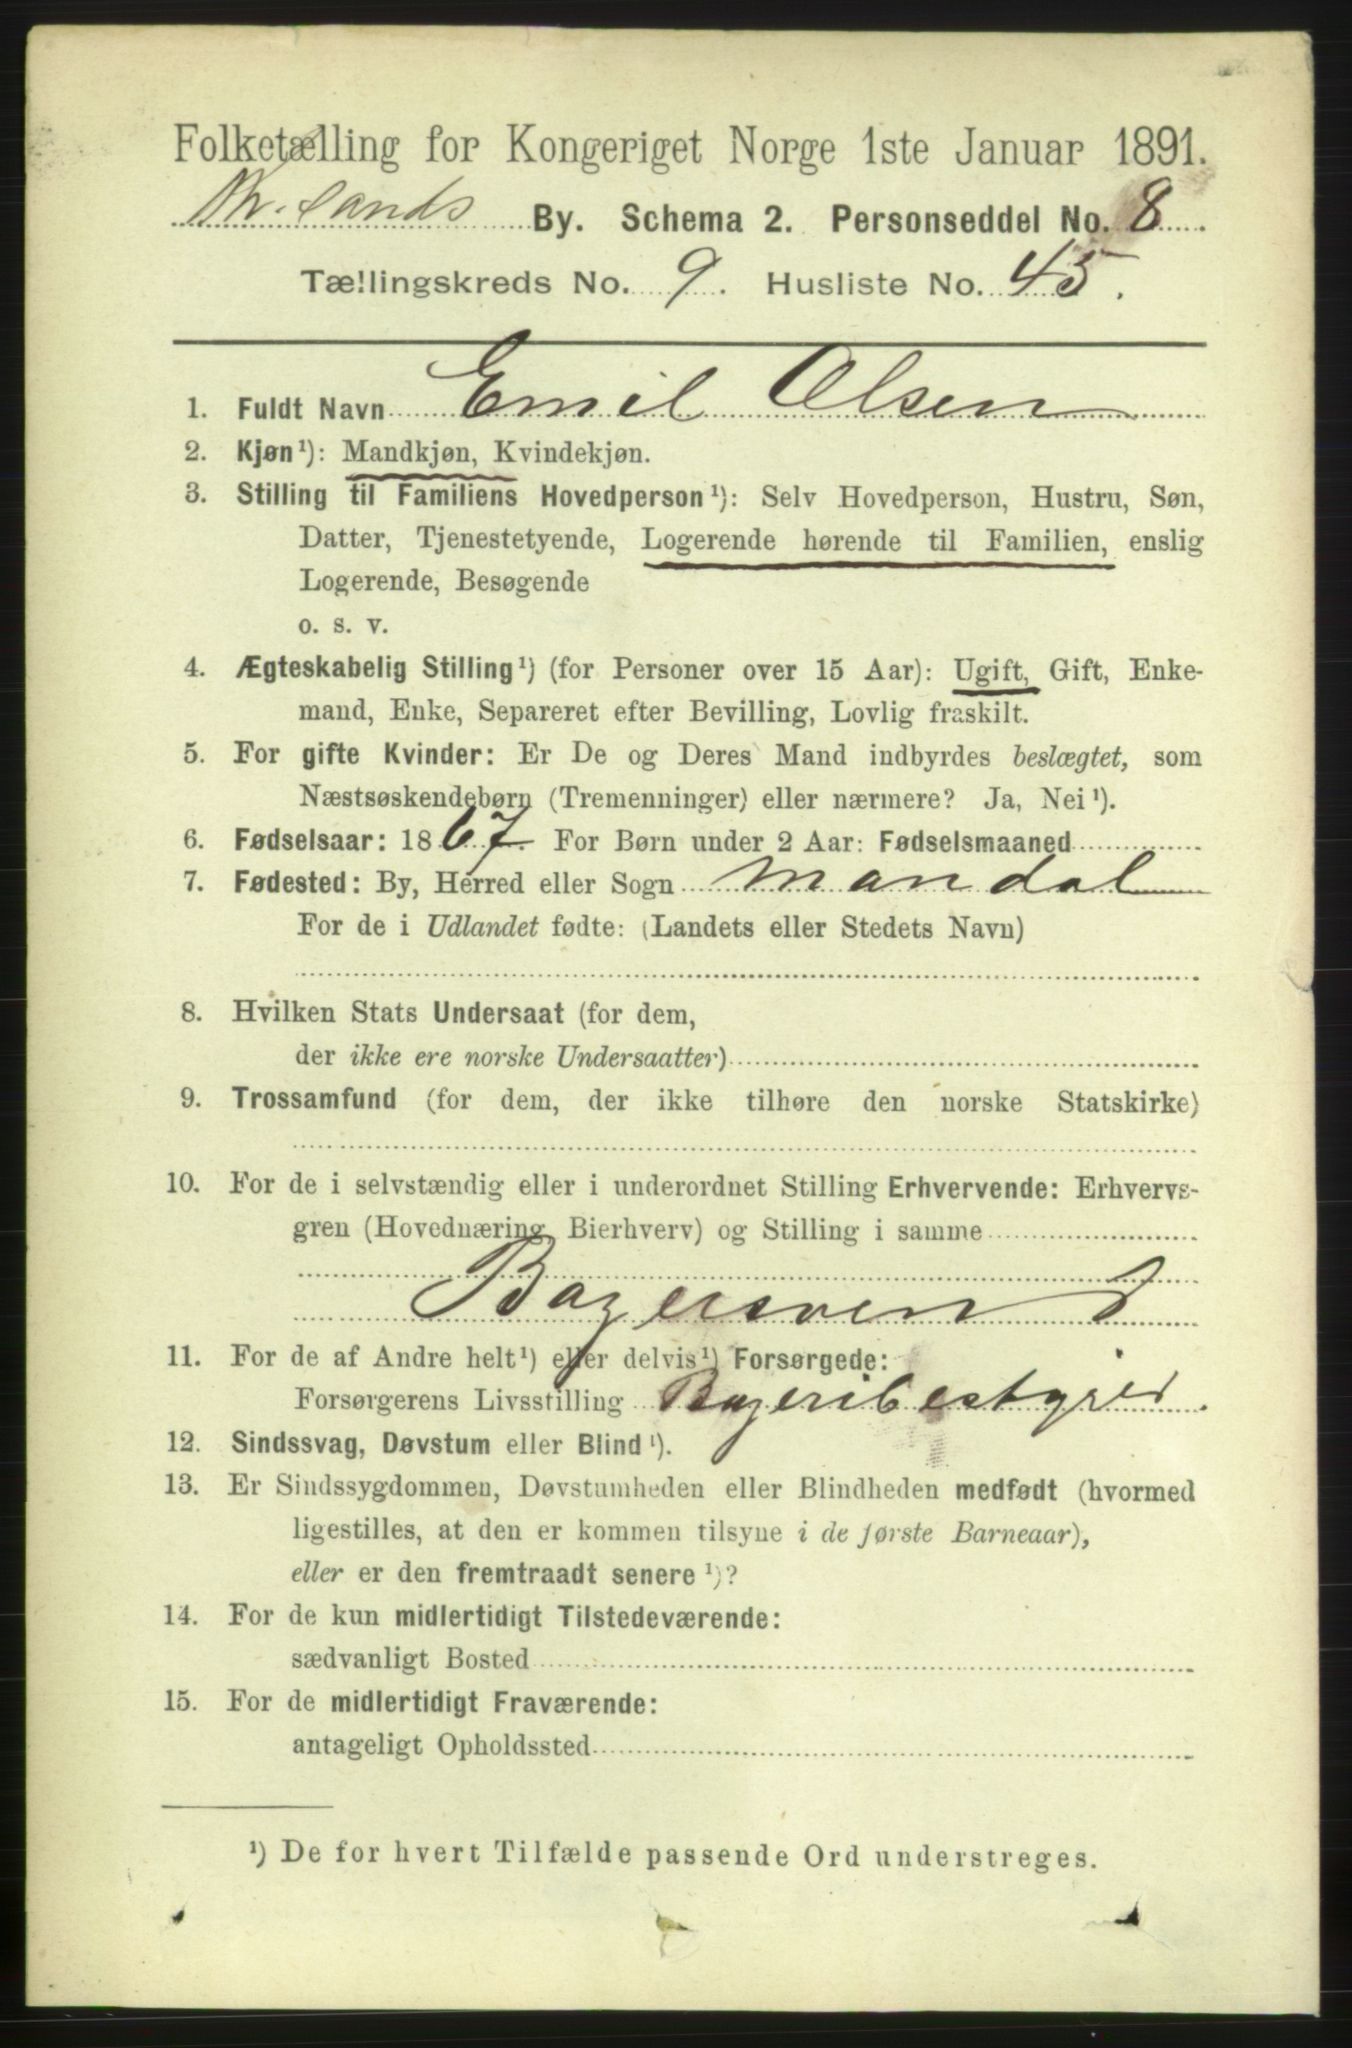 Folketælling for Kongeriget Norge 1ste Januar 1891.
Chr.sands By. Schema 2. Personseddel No. 8
Tællingskreds No. 9. Husliste No. 45.
1. Fuldt Navn Emil Olsen
2. Kjøn¹): Mandkjøn, Kvindekjøn.
3. Stilling til Familiens Hovedperson¹): Selv Hovedperson, Hustru, Søn,
Datter, Tjenestetyende, Logerende hørende til Familien, enslig
Logerende, Besøgende
o. s. v.
4. Ægteskabelig Stilling¹) (for Personer over 15 Aar): Ugift, Gift, Enke-
mand, Enke, Separeret efter Bevilling, Lovlig fraskilt.
5. For gifte Kvinder: Er De og Deres Mand indbyrdes beslægtet, som
Næstsøskendebørn (Tremenninger) eller nærmere? Ja, Nei¹).
6. Fødselsaar: 1867. For Børn under 2 Aar: Fødselsmaaned
7. Fødested: By, Herred eller Sogn Mandal
For de i Udlandet fødte: (Landets eller Stedets Navn)
8. Hvilken Stats Undersaat (for dem,
der ikke ere norske Undersaatter)
9. Trossamfund (for dem, der ikke tilhøre den norske Statskirke)
10. For de i selvstændig eller i underordnet Stilling Erhvervende: Erhvervs-
gren (Hovednæring, Bierhverv) og Stilling i samme
Bagersvend
11. For de af Andre helt¹) eller delvis¹) Forsørgede:
Forsørgerens Livsstilling Bageribestyrer.
12. Sindssvag, Døvstum eller Blind¹).
13. Er Sindssygdommen, Døvstumheden eller Blindheden medfødt (hvormed
ligestilles, at den er kommen tilsyne i de første Barneaar),
eller er den fremtraadt senere¹)?
14. For de kun midlertidigt Tilstedeværende:
sædvanligt Bosted
15. For de midlertidigt Fraværende:
antageligt Opholdssted
¹) De for hvert Tilfælde passende Ord understreges.